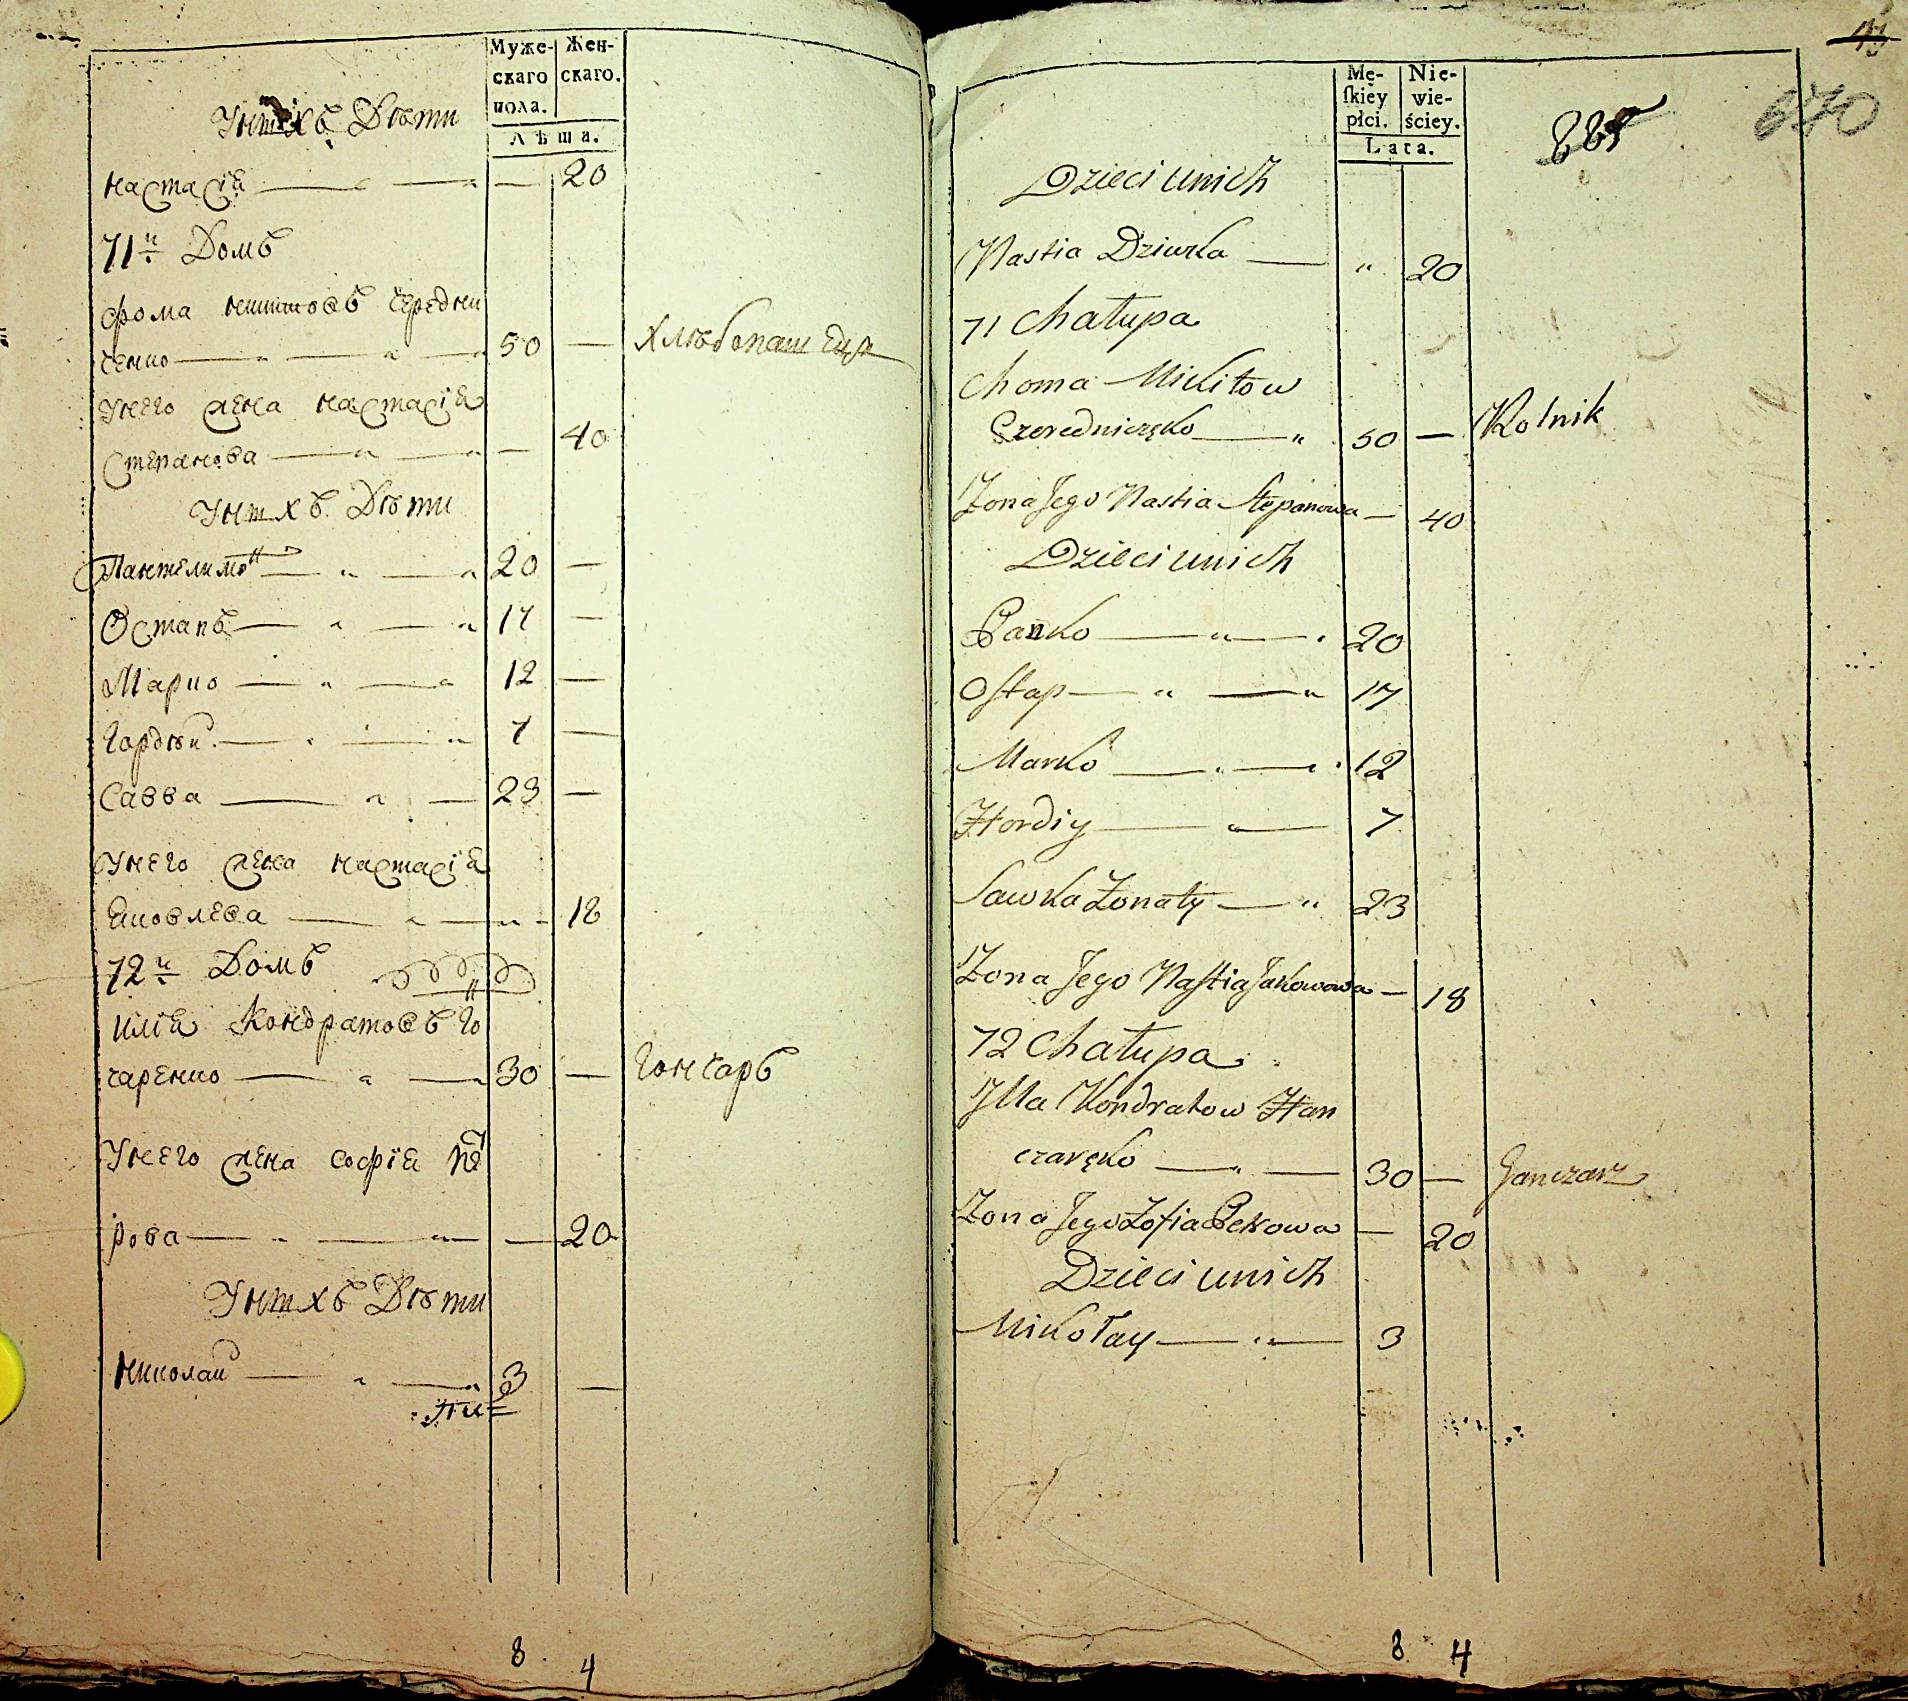 Муже-
скаго
пола.
Жен-
скаго.
Лѣта.
У нихъ Дѣти
Настасїя 20
71й Домъ
Фома Никитовъ Чередни
ченко 50 — Хлѣбопашецъ
У него жена Настасїя
Степанова — 40
У нихъ Дѣти
Пантелимонъ 20 —
Остапъ 17 —
Марко 12 —
Гордѣй 7 —
Савва 23 —
У него жена Настасїя
Яковлева 18
72й Домъ
Илїя Кондратовъ Гон
чаренко 30 — Гончаръ
У него жена Софїя Пет
рова — 20
У нихъ Дѣти
Николай 3 —
8 4
Mę-
skiey
płci.
Nie-
wie-
ściey.
Lata.
670
Dzieci u nich
Nastia Dziurka — " 20
71 Chałupa
Choma Mikitow
Czeredniczęko — " 50 — Rolnik
Żona Jego Nastia Stepanowa — 40
Dzieci u nich
Panko 20
Ostap 17
Marko 12
Hordiy 7
Sawka Żonaty — " 23
Żona Jego Nastia Jakowowa — 18
72 Chałupa
Jlla Kondratow Han
czaręko 30 — Ganczarz
Żona Jego Zofia Petrowa — 20
Dzieci u nich
Mikołay 3
8 4